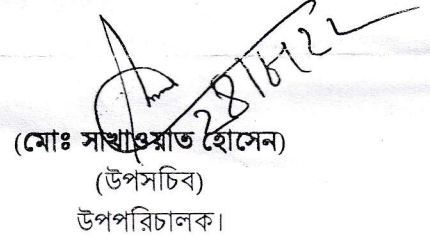 ২৪/৮/২২
(মোঃ সাখাওয়াত হোসেন)
(উপসচিব)
উপপরিচালক।